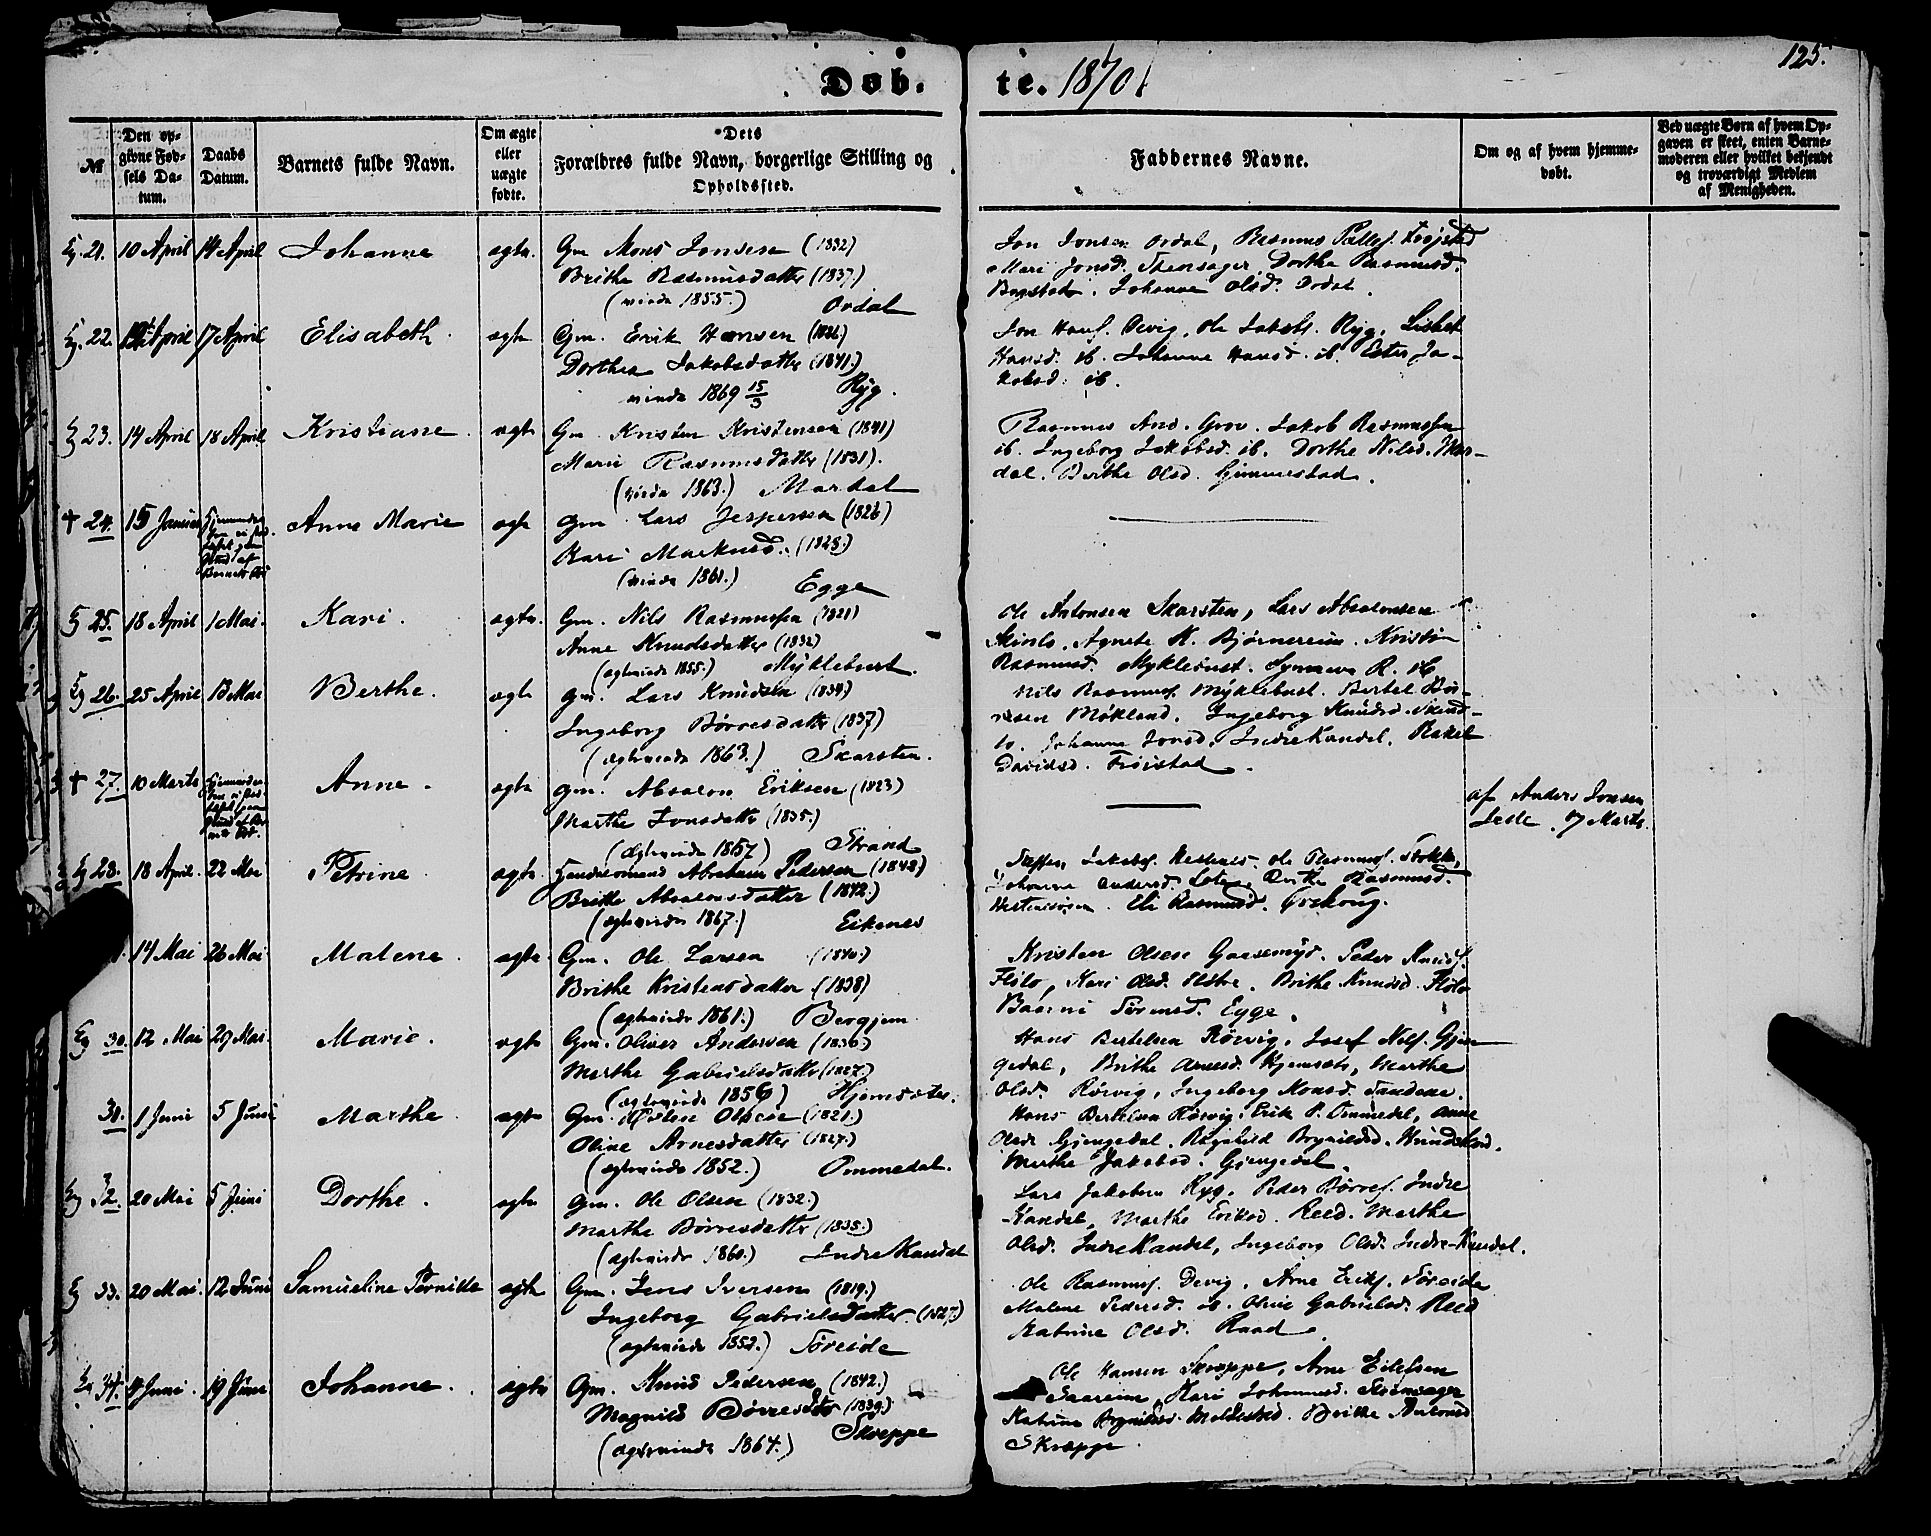 125.
Døb- te. 1870.
№
Den opgivne Fødsels Datum.
Daabs Datum.
Barnets fulde Navn.
Om ægte eller uægte fødte.
Dets Forældres fulde Navn, borgerlige Stilling og Opholdssted.
Faddernes Navne.
Om og af hvem hjemmedøbt.
Ved uægte Børn af hvem Opgaven er skeet, enten Barnemoderen eller hvilket bekjendt og troværdigt Medlem af Menigheden.
21. 10 April 14 April Johanne ægte. Gm Mons Jonsen (1832)
Brithe Rasmusdatter (1837)
(viede 1855.) Ordal
Jon Jonsen Ordal, Rasmus
Mari Jonsd. Dorthe Rasmusd.
Johanne Olsd. Ordal.
22. April 17 April Elisabeth. ægte Gm. Erik Hansen (1826)
Dorthea Jakobsdatter (1841.)
viede 1869 15/3 Ryg.
Jon Hansf. Devig, Ole Jakobs. Ryg, Lisbet
Hansd. ib. Johanne Hansd. ib. Ester Ja-
kobsd. ib.
23. 14 April 18 April Kristiane. ægte Gm. Kristen Kristensen (1841)
Marie Rasmusdatter (1831).
(viede 1863.) Mardal
Rasmus And. Grov. Jakob Rasmussen
ib. Ingeborg Jakobsd. ib. Dorthe Nilsd. Mar-
dal. Berthe Olsd. Gimmestad.
+ 24. 15 Januar Anne Marie ægte Gm. Lars Jespersen (1826)
Kari Markusd. (1828.)
(viede 1861.) Egge
25. 18 April 1 Mai. Kari. ægte. Gm. Nils Rasmussen (1821)
Anne Knudsdatter (1832)
(ægteviede 1855.) Myklebust.
Ole Antonsen Skarsten, Lars Absalonsen
Agnete K. Bjørnereim. Kristin
Rasmusd. Myklebust. Synneva R. ib.
26. 25 April 13 Mai Berthe. ægte Gm. Lars Knudsen (1834)
Ingeborg Børresdatter (1837)
(ægteviede 1863.) Skarsten.
Nils Rasmusf. Myklebust. Bertel Bør-
resen Mokland. Ingeborg Knudsd.
Johanne Jonsd. IndreKandal. Rakel
Davidsd. Frøistad.
+ 27. 10 Marts Anne. ægte Gm. Absalon Eriksen (1823)
Marthe Jonsdatter (1835.)
(ægteviede 1857) Strand
af Anders Jonsen
7 Marts.
28. 18 April. 22 Mai Petrine. ægte. Huusmand Abraham Pedersen (1848)
Brithe Absalonsdatter (1842.)
(ægteviede 1867.) Eikenes
Steffen Jakobsf. Hestenes. Ole Rasmusf.
Johanne Andersd. Berthe Rasmusd.
Eli Rasmusd.
14 Mai 26 Mai Malene. ægte. Gm. Ole Larsen (1840.)
Brithe Kristensdatter (1838)
(ægteviede 1861.) Bergjem.
Kristen Olsen Gaasemyr. Peder Knudsf.
Flølo, Kari Olsd. Brithe Knudsd. Flølo
Sørensd. Egge.
30. 12 Mai 29 Mai. Marie. ægte Gm. Oliver Andersen (1830)
Marthe Gabrielsdatter (1827.)
(ægteviede 1856) Hjemsæter.
Hans Bertelsen Rørvig, Josef Nilsf. Gjen-
gedal, Brithe Arnesd. Hjemsæter, Marthe
Olsd. Rørvig, Ingeborg Monsd. Sandene.
31. 1 Juni 5 Juni Marthe ægte Gm. Peder Olsen (1821.)
Oline Arnesdatter (1827.)
(ægteviede 1852.) Ommedal.
Hans Bertelsen Rørvig. Erik P. Ommedal, Anne
Olsd. Gjengedal. Ragnhild
Marthe Jakobsd. Gjengedal.
32. 20 Mai 5 Juni Dorthe. ægte Gm. Ole Olsen (1832.)
Marthe Børresdatter (1835.)
(ægteviede 1860.) IndreKandal
Lars Jakobsen Ryg. Peder Børresf. Indre
-Kandal, Marthe Eriksd. Reed. Marthe
Olsd. IndreKandal, Ingeborg Olsd. Indre-Kandal.
33. 20 Mai. 12 Juni Samueline Pernille ægte Gm. Jens Iversen (1819.)
Ingeborg Gabrielsdatter. (1827.)
(ægteviede 1852.) Søreide
Ole Rasmusf. Devig. Arne Eriksf. Søreide
Malene Pedersd. ib. Oline Gabrielsd. Reed
Katrine Olsd. Raad.
34. 4 Juni. 19 Juni Johanne. ægte Gm. Knud Pedersen (1842.)
Magnild Børresdtr (1839)
(ægteviede 1864.) Skreppe
Ole Hansen Skreppe, Arne Eilefsen
Saareim, Kari Johannesd. Steinsager
Katrine Brynildsd. Brithe Antonsd.
Skræppe.